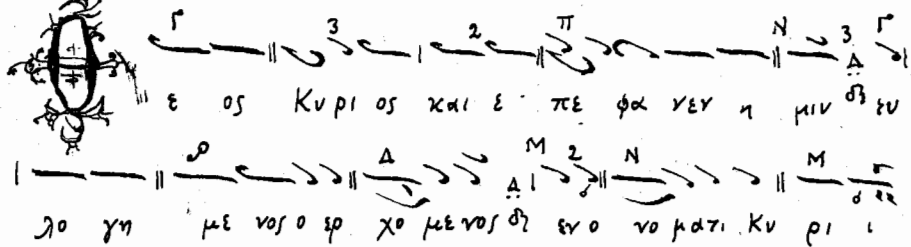 Γ 3 2 π Ν 3 Γ
Θ ε ος Κυ ρι ος και ε πε φα νεν η μιν ευ
Δ Μ 2 Ν Μ
λο γη με νος ο ερ χο με νος εν ο νο μα τι Κυ ρι ι